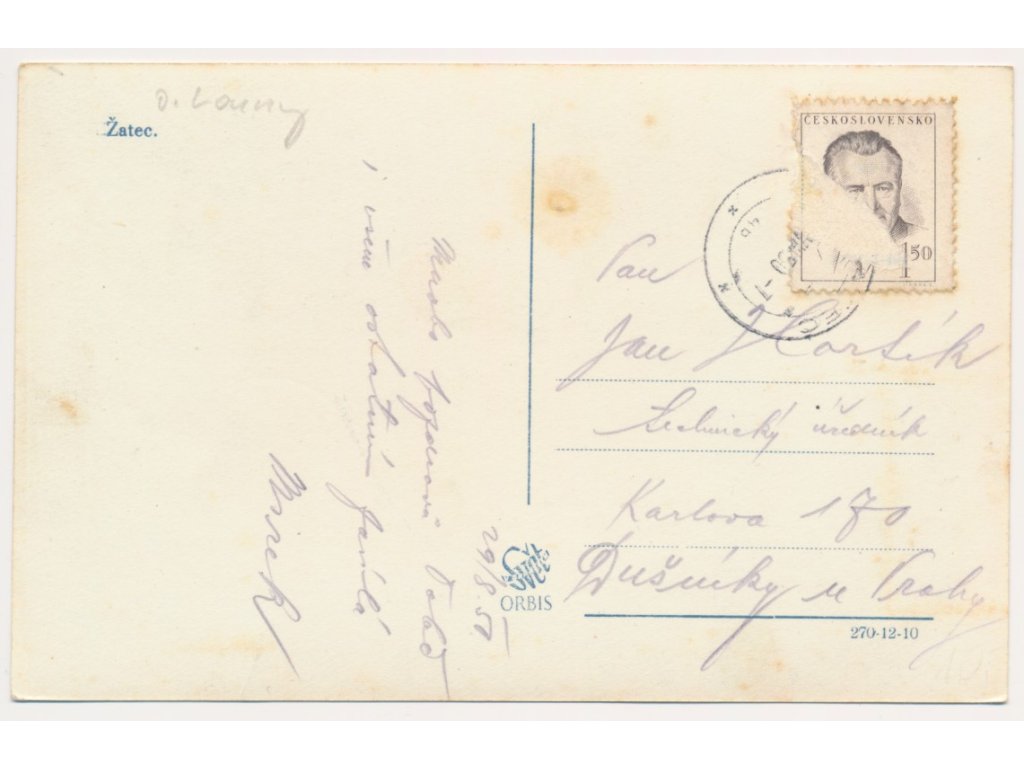 o. Louny
Žatec.
ČESKOSLOVENSKO
1.50
Mnoho pozdravů
i všem ostatním
Mirek
29/8 50
Pan
Jan Horšík
technický úředník
Karlova 170
Dušníky u Prahy
ORBIS
270-12-10